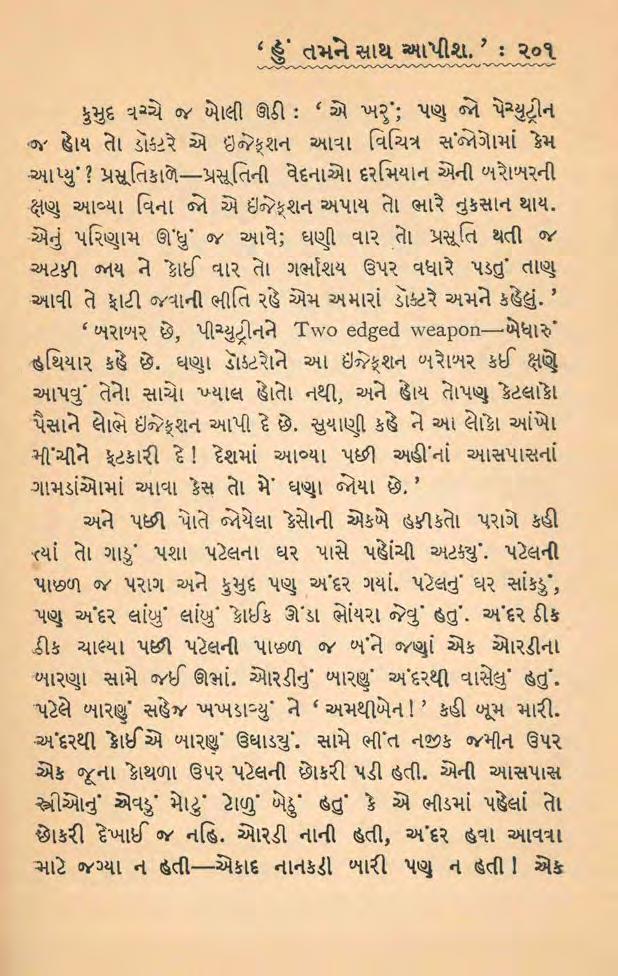 ‘ હું તમને સાથ આપીશ. ’ : ૨૦૧
કુમુદ વચ્ચે જ બોલી ઊઠી : ‘ એ ખરું; પણ જો પેચ્યુટ્રીન
જ હોય તો ડૉક્ટરે એ ઇંજેક્શન આવા વિચિત્ર સંજોગોમાં કેમ
આપ્યું ? પ્રસૂતિકાળે—પ્રસૂતિની વેદનાઓ દરમિયાન એની બરોબરની
ક્ષણ આવ્યા વિના જો એ ઇંજેક્શન અપાય તો ભારે નુકસાન થાય.
એનું પરિણામ ઊંધું જ આવે; ઘણી વાર તો પ્રસૂતિ થતી જ
અટકી જાય ને કોઈ વાર તો ગર્ભાશય ઉપર વધારે પડતું તાણ
આવી તે ફાટી જવાની ભીતિ રહે એમ અમારાં ડૉક્ટરે અમને કહેલું. ’
‘ બરાબર છે, પીચ્યુટ્રીનને Two edged weapon—બેધારું
હથિયાર કહે છે. ઘણા ડૉક્ટરોને આ ઇંજેક્શન બરોબર કઈ ક્ષણે
આપવું તેનો સાચો ખ્યાલ હોતો નથી, અને હોય તોપણ કેટલાકો
પૈસાને લોભે ઇંજેક્શન આપી દે છે. સુયાણી કહે ને આ લોકો આંખો
મીંચીને ફટકારી દે ! દેશમાં આવ્યા પછી અહીંનાં આસપાસનાં
ગામડાંઓમાં આવા કેસ તો મેં ઘણા જોયા છે. ’
અને પછી પોતે જોયેલા કેસોની એકબે હકીકતો પરાગે કહી
ત્યાં તો ગાડું પશા પટેલના ઘર પાસે પહોંચી અટક્યું. પટેલની
પાછળ જ પરાગ અને કુમુદ પણ અંદર ગયાં. પટેલનું ઘર સાંકડું,
પણ અંદર લાંબું લાંબું કોઈક ઊંડા ભોંયરા જેવું હતું. અંદર ઠીક
ઠીક ચાલ્યા પછી પટેલની પાછળ જ બંને જણાં એક ઓરડીના
બારણા સામે જઈ ઊભાં. ઓરડીનું બારણું અંદરથી વાસેલું હતું.
પટેલે બારણું સહેજ ખખડાવ્યું ને ‘ અમથીબેન ! ’ કહી બૂમ મારી.
અંદરથી કોઈએ બારણું ઉઘાડ્યું. સામે ભીંત નજીક જમીન ઉપર
એક જૂના કોથળા ઉપર પટેલની છોકરી પડી હતી. એની આસપાસ
સ્ત્રીઓનું એવડું મોટું ટોળું બેઠું હતું કે એ ભીડમાં પહેલાં તો
છોકરી દેખાઈ જ નહિ. ઓરડી નાની હતી, અંદર હવા આવવા
માટે જગ્યા ન હતી—એકાદ નાનકડી બારી પણ ન હતી ! એક